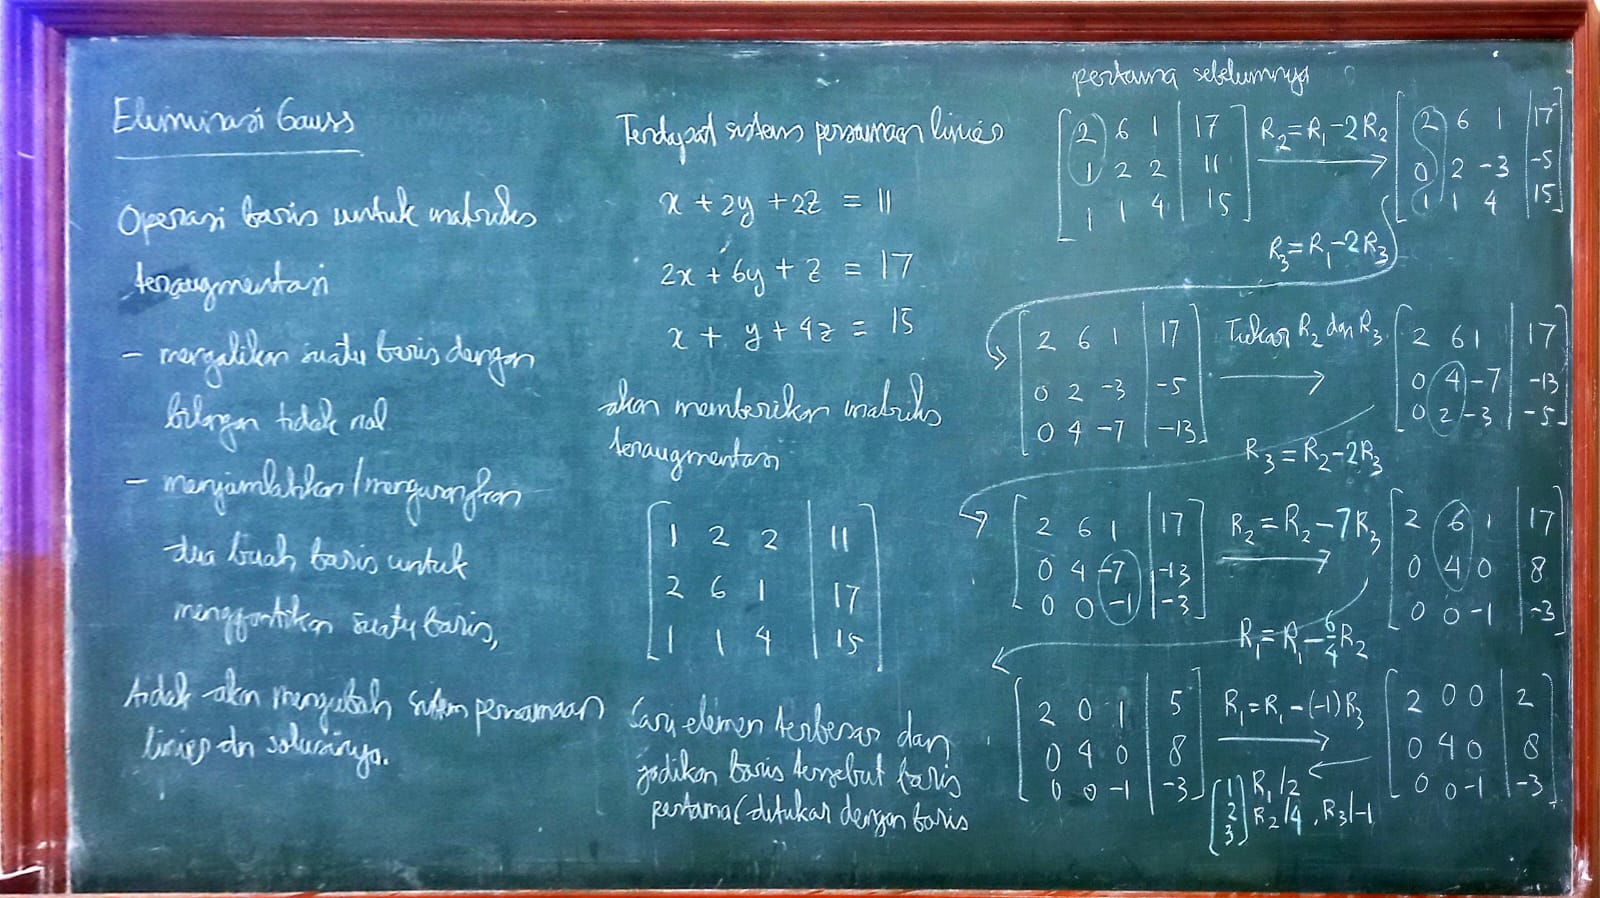 Eliminasi Gauss
Operasi baris untuk matriks
teraugmentasi
- mengalikan suatu baris dengan
bilangan tidak nol
- menjumlahkan/mengurangkan
dua buah baris untuk
menggantikan suatu baris,
tidak akan mengubah sistem persamaan
linier dn solusinya.
Terdapat sistem persamaan linier
x + 2y + 2z = 11
2x + 6y + z = 17
x + y + 4z = 15
akan memberikan matriks
teraugmentasi
[1 2 2 | 11]
[2 6 1 | 17]
[1 1 4 | 15]
Cari elemen terbesar dan
jadikan baris tersebut baris
pertama (ditukar dengan baris
pertama sebelumnya
[2 6 1 | 17] R₂=R₁-2R₂ [2 6 1 | 17]
[1 2 2 | 11] → [0 2 -3 | -5]
[1 1 4 | 15] [1 1 4 | 15]
R₃=R₁-2R₃
[2 6 1 | 17] Tukar R₂ dan R₃ [2 6 1 | 17]
[0 2 -3 | -5] → [0 4 -7 | -13]
[0 4 -7 | -13] [0 2 -3 | -5]
R₃=R₂-2R₃
[2 6 1 | 17] R₂=R₂-7R₃ [2 6 1 | 17]
[0 4 -7 | -13] → [0 4 0 | 8]
[0 0 -1 | -3] [0 0 -1 | -3]
R₁=R₁-6/4R₂
[2 0 1 | 5] R₁=R₁-(-1)R₃ [2 0 0 | 2]
[0 4 0 | 8] → [0 4 0 | 8]
[0 0 -1 | -3] [0 0 -1 | -3]
[1] R₁/2
[2] R₂/4, R₃/-1
[3]